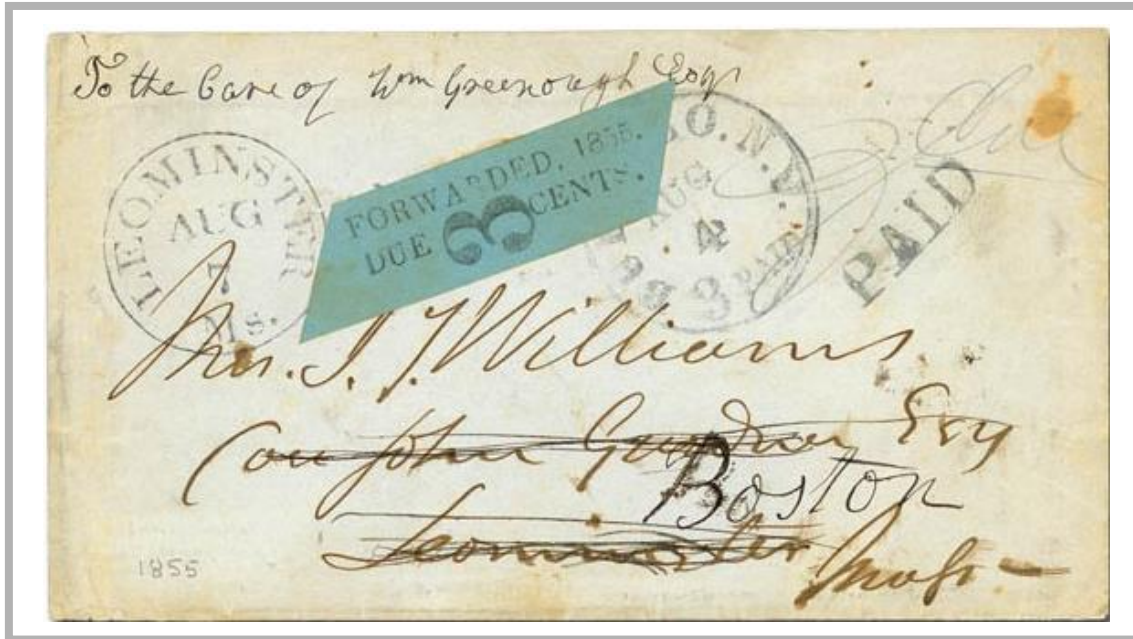 To the Care of Wm Greenough Esqr
LEOMINSTER
AUG
7
Ms.
FORWARDED, 1855.
DUE 3 CENTS.
O. N.Y.
AUG
4
3 PAID
PAID
Due
Mrs. J. J. Williams
Care John Gardner Esq
Boston
Leominster
Mass
1855